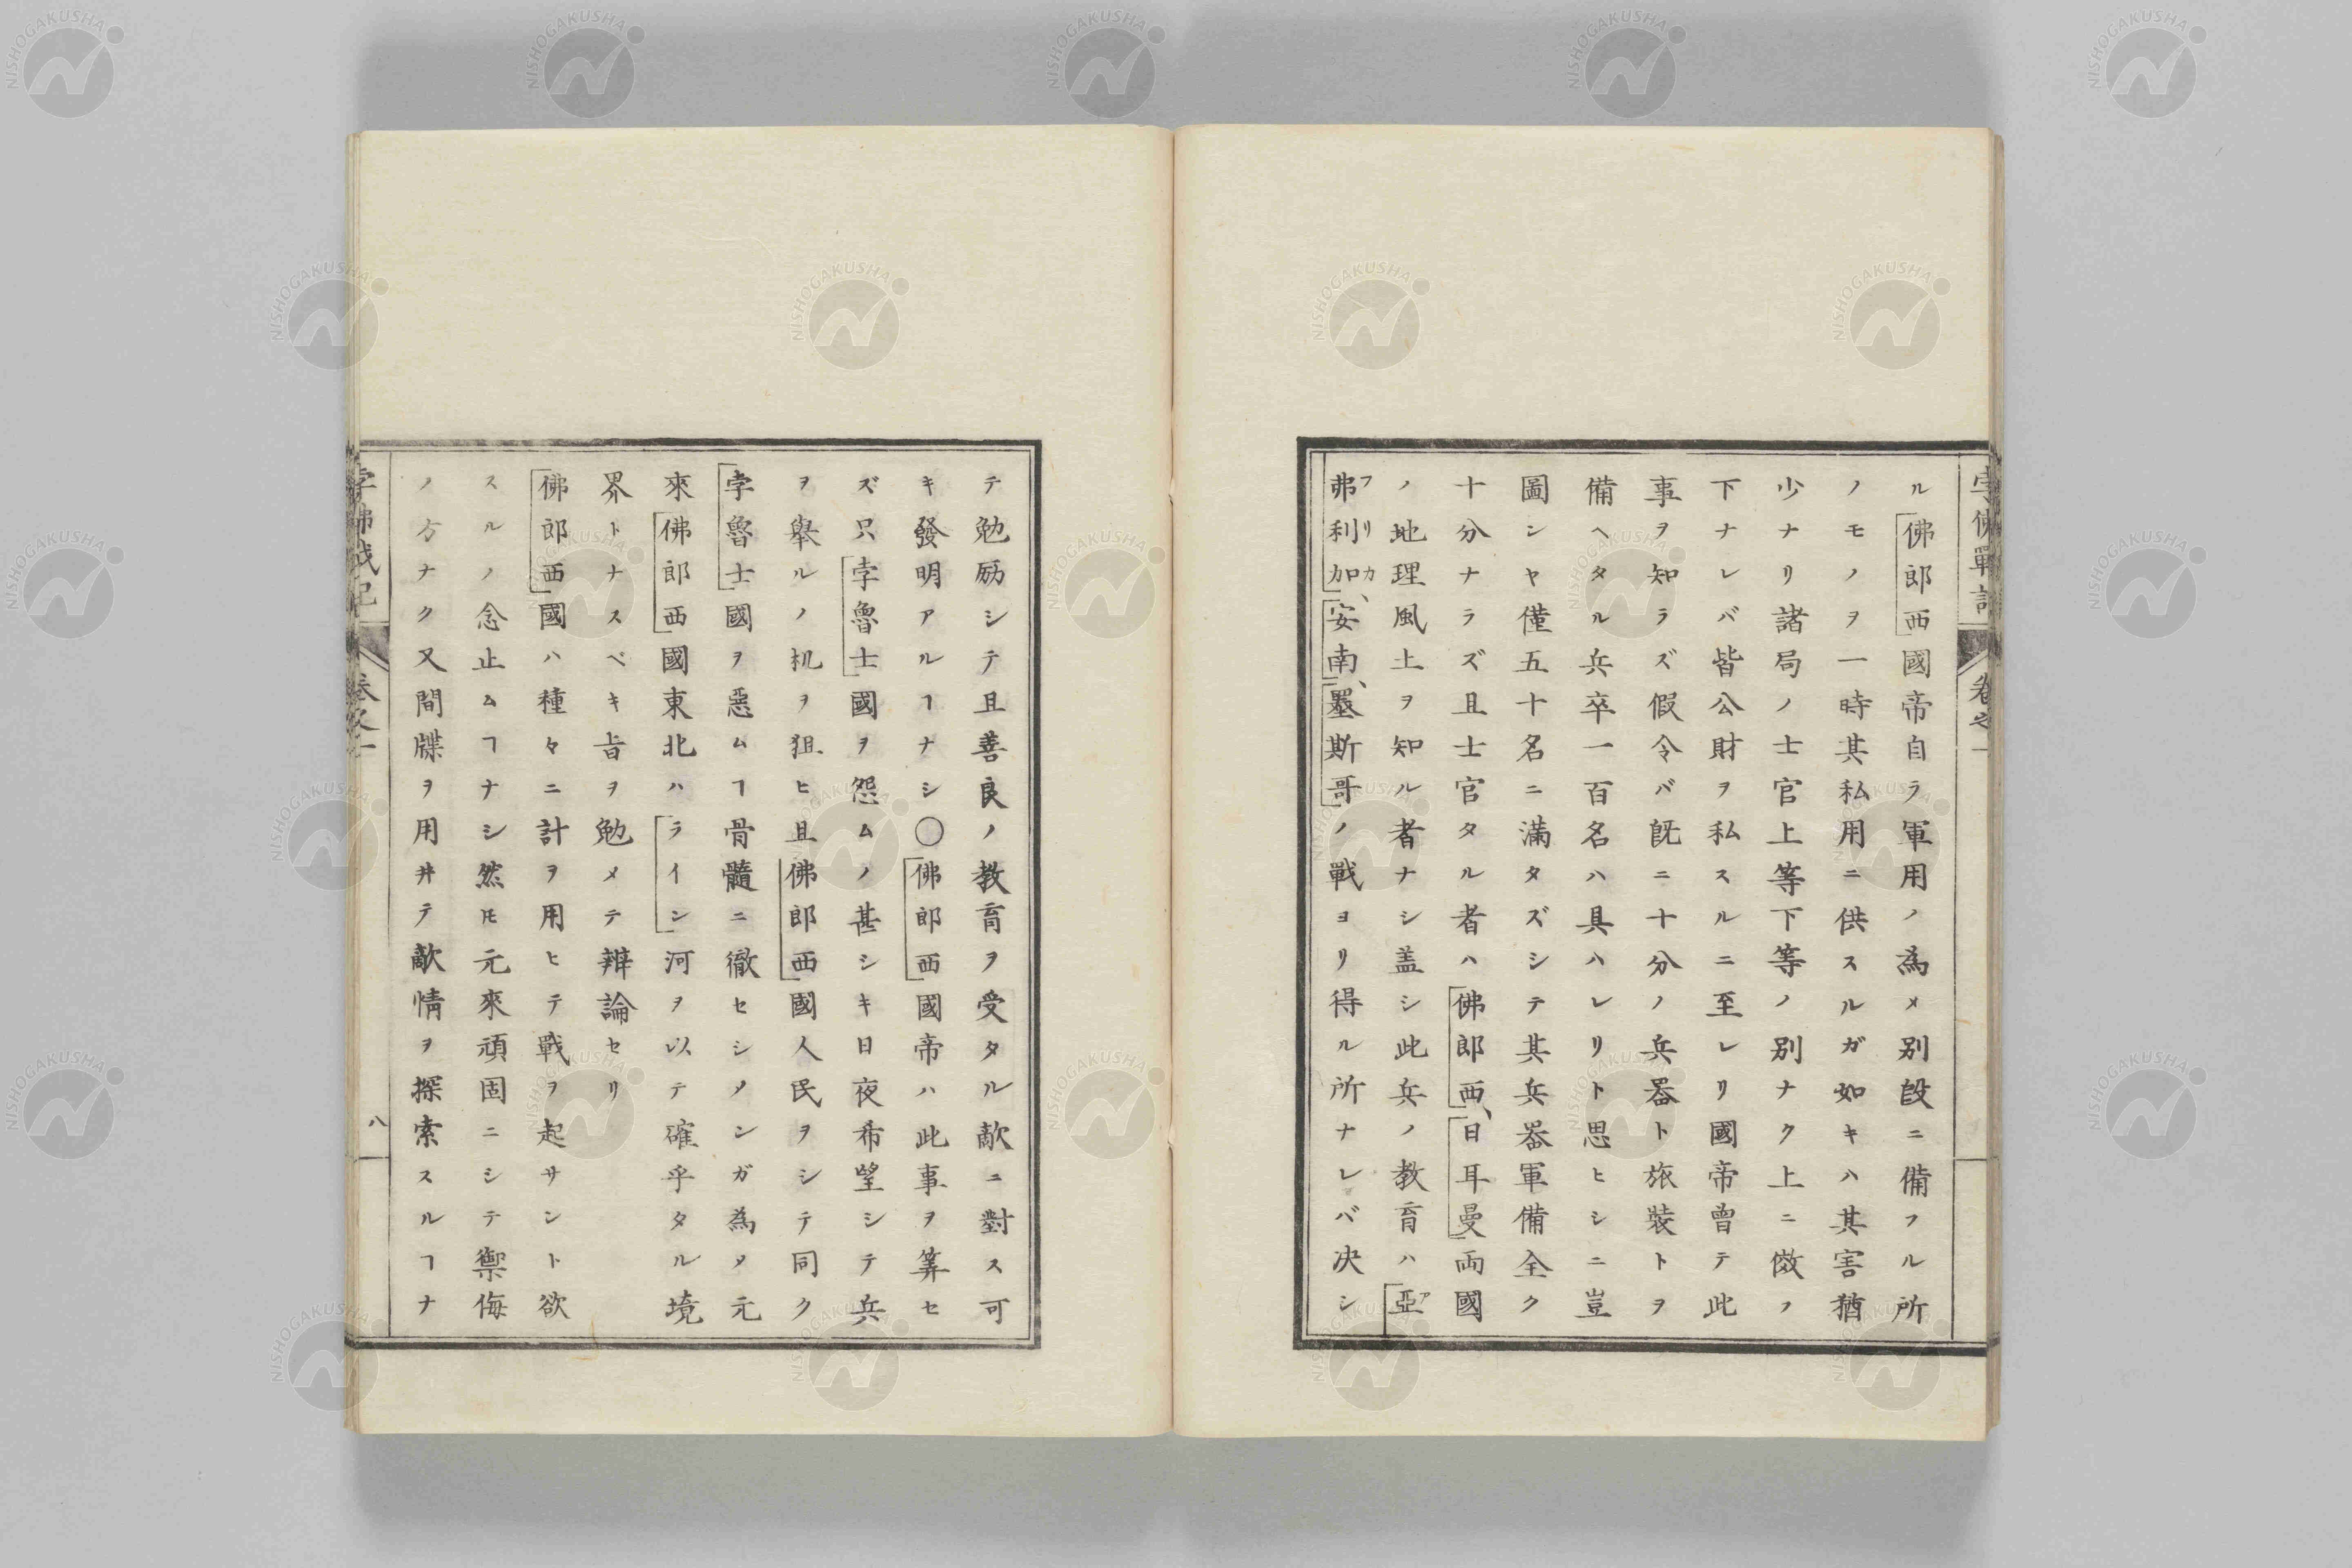 孛佛戰記 卷之一
ル佛郎西國帝自ラ軍用ノ為メ別段ニ備フル所
ノモノヲ一時其私用ニ供スルガ如キハ其害猶
少ナリ諸局ノ士官上等下等ノ別ナク上ニ傚フ
下ナレバ皆公財ヲ私スルニ至レリ國帝曾テ此
事ヲ知ラズ假令バ既ニ十分ノ兵器ト旅裝トヲ
備ヘタル兵卒一百名ハ具ハレリト思ヒシニ豈
圖シヤ僅五十名ニ滿タズシテ其兵器軍備全ク
十分ナラズ且士官タル者ハ佛郎西、日耳曼両國
ノ地理風土ヲ知ル者ナシ盖シ此兵ノ教育ハ亞
弗利加、安南、墨斯哥ノ戰ヨリ得ル所ナレバ决シ
テ勉励シテ且善良ノ教育ヲ受タル敵ニ對ス可
キ發明アルヿナシ○佛郎西國帝ハ此事ヲ筭セ
ズ只孛魯士國ヲ怨ムノ甚シキ日夜希望シテ兵
ヲ舉ルノ机ヲ狙ヒ且佛郎西國人民ヲシテ同ク
孛魯士國ヲ惡ムヿ骨髓ニ徹セシメンガ為メ元
來佛郎西國東北ハライン河ヲ以テ確乎タル境
界トナスベキ旨ヲ勉メテ辨論セリ
佛郎西國ハ種々ニ計ヲ用ヒテ戰ヲ起サント欲
スルノ念止ムヿナシ然ㇳモ元來頑固ニシテ禦侮
ノ方ナク又間牒ヲ用井テ敵情ヲ探索スルヿナ
孛佛戰記 卷之一 八
NISHOGAKUSHA